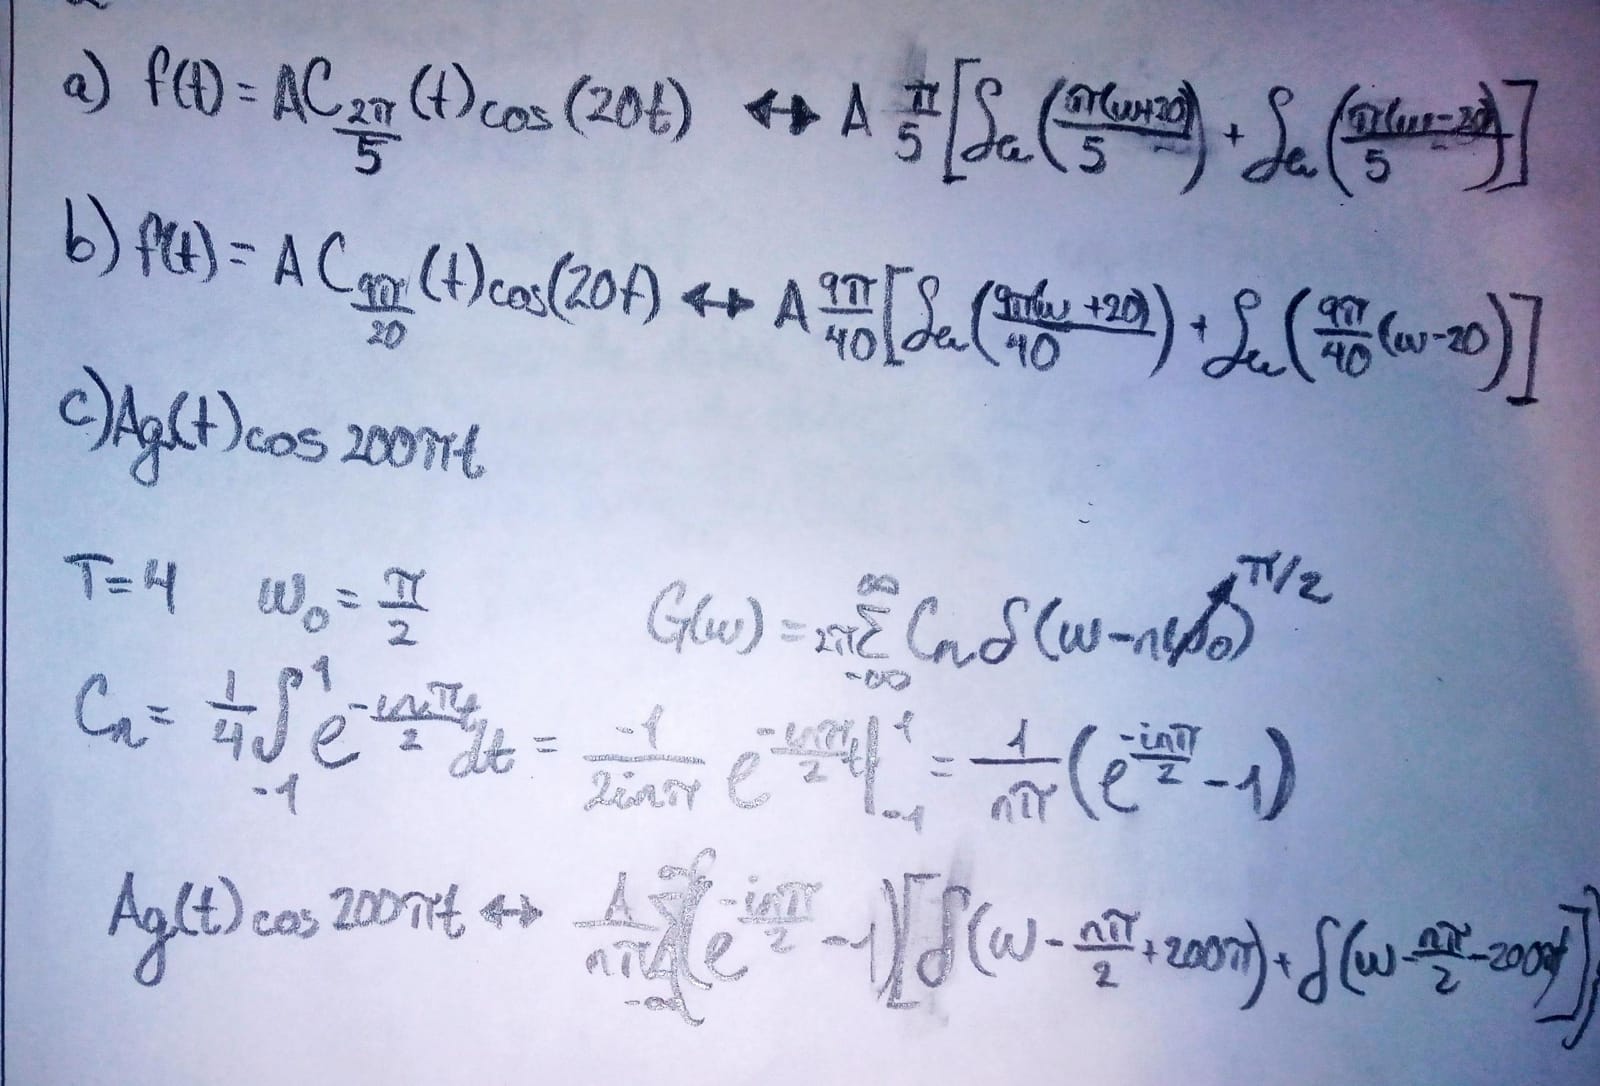 a) f(t) = AC_{2π/5}(t) cos(20t) ↔ A π/5 [Sa(π(ω+20)/5) + Sa(π(ω-20)/5)]
b) f(t) = AC_{9π/20}(t) cos(20t) ↔ A 9π/40 [Sa(9π(ω+20)/40) + Sa(9π/40 (ω-20))]
c) Ag(t) cos 200πt
T=4 ω₀ = π/2 G(ω) = 2π ∑_{-∞}^{∞} Cₙ δ(ω-nω₀) π/2
Cₙ = 1/4 ∫_{-1}^{1} e^{-inπt/2} dt = -1/(2inπ) e^{-inπt/2} |_{-1}^{1} = 1/(nπ) (e^{-inπ/2} - 1)
Ag(t) cos 200πt ↔ A/(nπ) ∑_{-∞}^{∞} (e^{-inπ/2} - 1) [δ(ω - nπ/2 + 200π) + δ(ω - nπ/2 - 200π)]